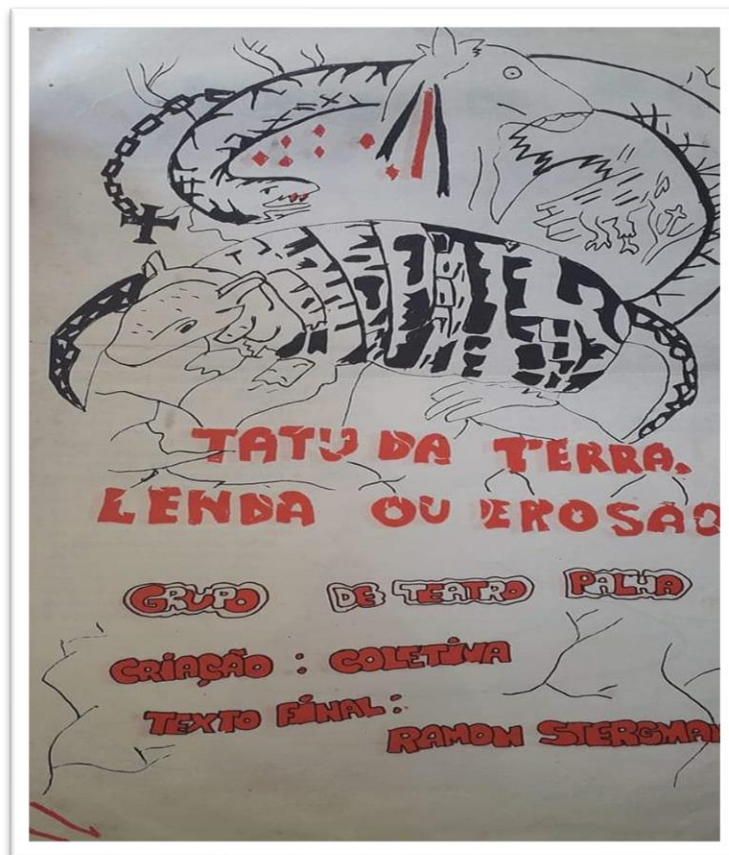 TATU DA TERRA.
LENDA OU EROSAO
GRUPO DE TEATRO PALHA
CRIAÇÃO : COLETIVA
TEXTO FINAL :
RAMON STERGMAN